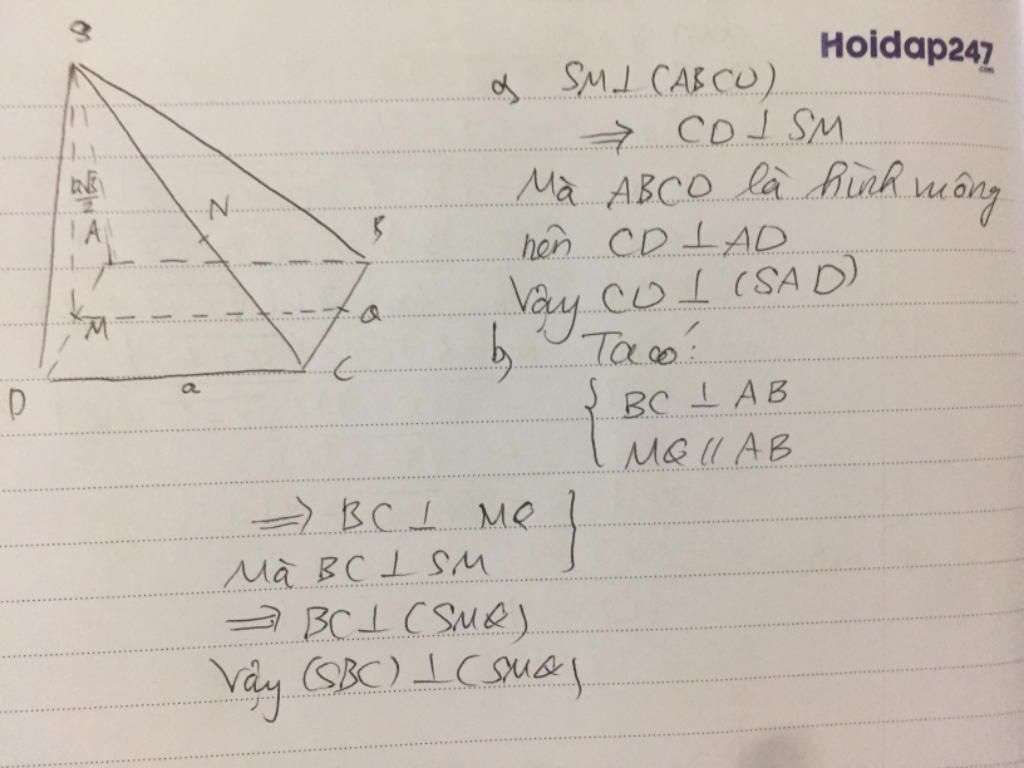 Hoidap247
.com
S
a√3/2
A
N
B
M
Q
D
a
C
a) SM ⊥ (ABCD)
⇒ CD ⊥ SM
Mà ABCD là hình vuông
nên CD ⊥ AD
Vậy CD ⊥ (SAD)
b) Ta có:
{ BC ⊥ AB
MQ // AB
⇒ BC ⊥ MQ }
Mà BC ⊥ SM
⇒ BC ⊥ (SMQ)
Vậy (SBC) ⊥ (SMQ)